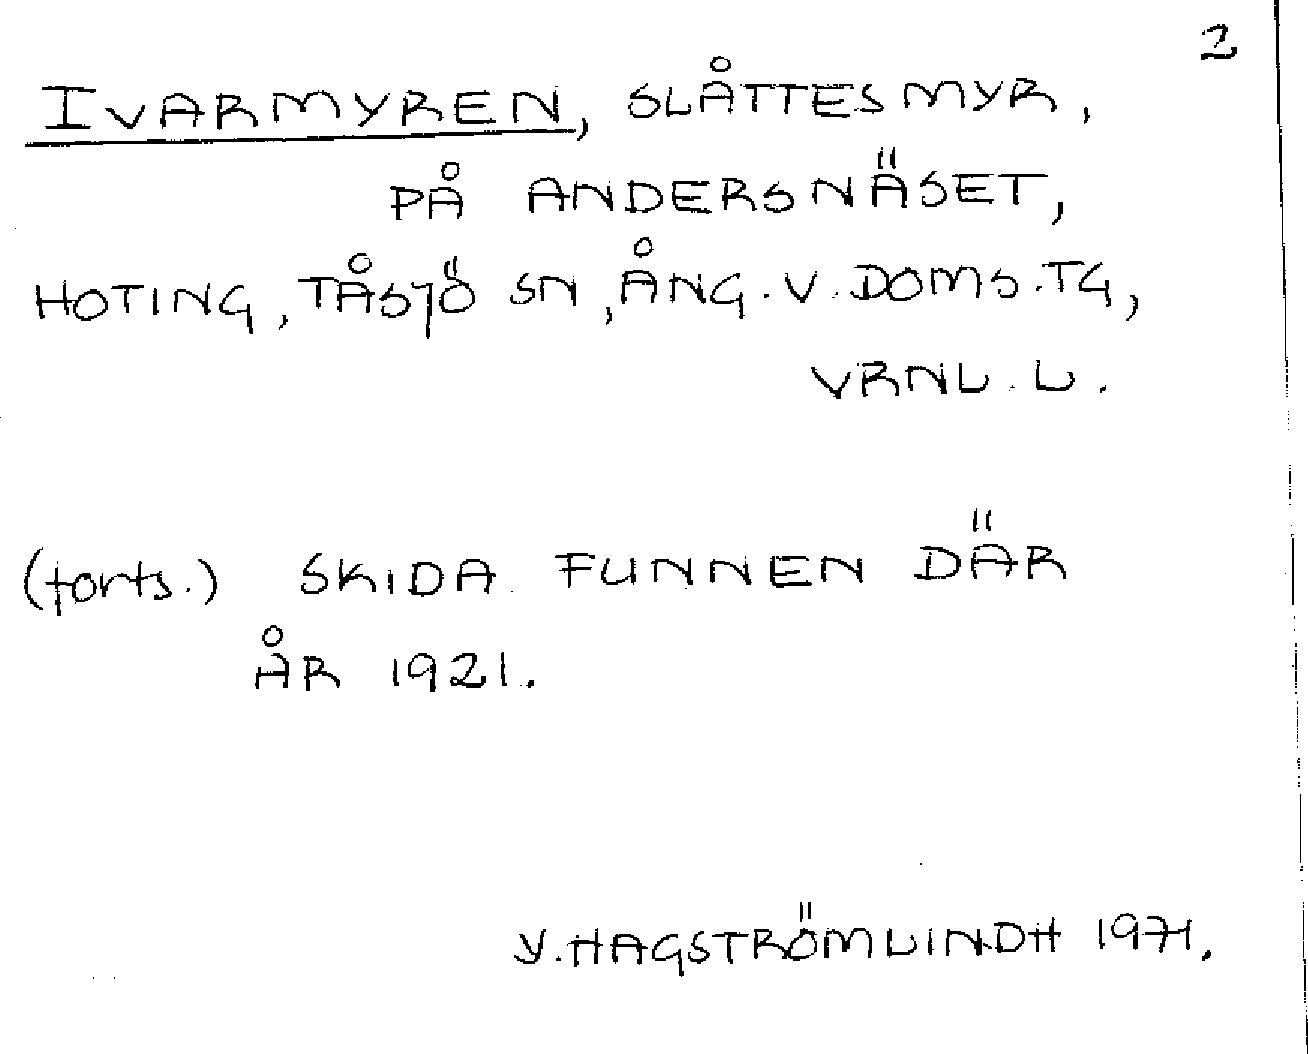 2
IVARMYREN, SLÅTTESMYR,
PÅ ANDERSNÄSET,
HOTING, TÅSJÖ SN, ÅNG. V. DOMS. TG,
VRNL. L.
(forts.) SKIDA FUNNEN DÄR
ÅR 1921.
Y. HAGSTRÖMLINDH 1971.